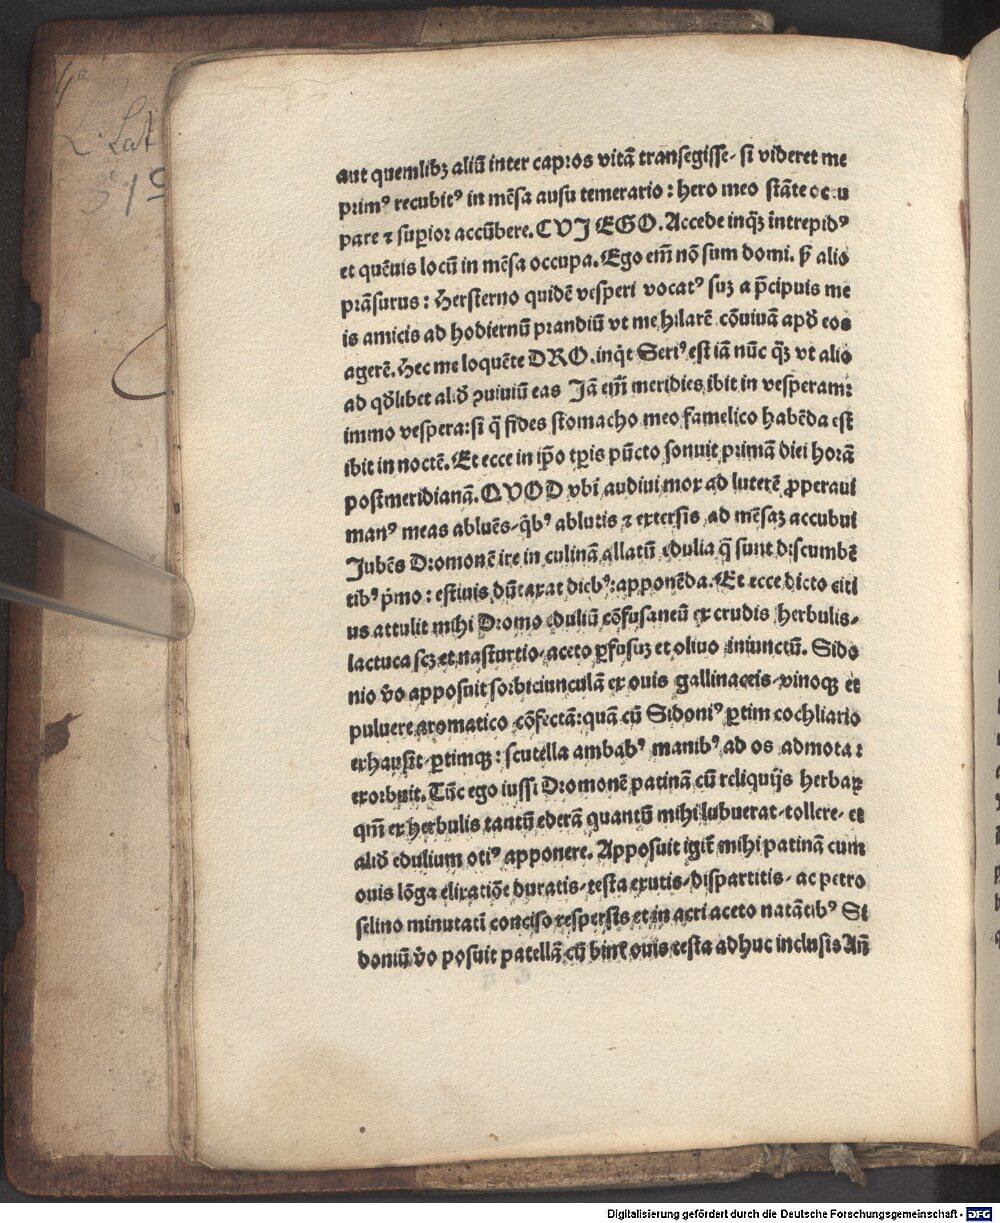 4°
L. Lat
519
aut quemlibꝫ aliū inter capros vitā transegisse, si videret me
primꝰ recubitꝰ in mēsa ausu temerario: hero meo stāte occu
pare ⁊ suꝑior accūbere. CVJ EGO. Accede inqͣꝫ intrepidꝰ
et quēuis locū in mēsa occupa. Ego em̄ nō sum domi. sꝫ alio
prāsurus: Hersterno quidē vesperi vocatꝰ suꝫ a p̄cipuis me
is amicis ad hodiernū prandiū vt me hilarē cōuiuā apd̄ eos
agerē. Hec me loquēte DRO. inqͥt Seriꝰ est iā nūc qͣꝫ vt alio
ad qd̄libet aliud̄ ꝯuiuiū eas Jā em̄ meridies ibit in vesperam:
immo vespera: si q̄ fides stomacho meo famelico habēda est
ibit in noctē. Et ecce in ip̄o tꝑis pūcto sonuit primā diei horā
postmeridianā. QVOD vbi audiui mox ad luterē ꝓperaui
manꝰ meas abluēs, qͥbꝰ ablutis ⁊ extersis ad mēsaꝫ accubui
Jubēs Dromonē ire in culinā allatū edulia q̄ sunt discumbē
tibꝰ pͥmo: estiuis dūtaxat diebꝰ: apponēda. Et ecce dicto citi
us attulit mihi Dromo eduliū cōfusaneū ex crudis herbulis,
lactuca scꝫ et nasturtio, aceto ꝑfusuꝫ et oliuo iniunctū. Sido
nio v̄o apposuit sorbiciunculā ex ouis gallinaceis, vinoqꝫ et
puluere aromatico cōfectā: quā cū Sidoniꝰ ꝑtim cochliario
exhausit, ꝑtimqꝫ: scutella ambabꝰ manibꝰ ad os admota:
exorbuit. Tūc ego iussi Dromonē patinā cū reliquijs herbaꝝ
qm̄ ex herbulis tantū ederā quantū mihi lubuerat, tollere, et
aliud̄ edulium otiꝰ apponere. Apposuit igit̄ mihi patinā cum
ouis lōga elixatiōe duratis, testa exutis, dispartitis, ac petro
selino minutati conciso respersis et in acri aceto natātibꝰ Si
doniū v̄o posuit patellā cū binis ouis testa adhuc inclusis An̄
Digitalisierung gefördert durch die Deutsche Forschungsgemeinschaft - DFG